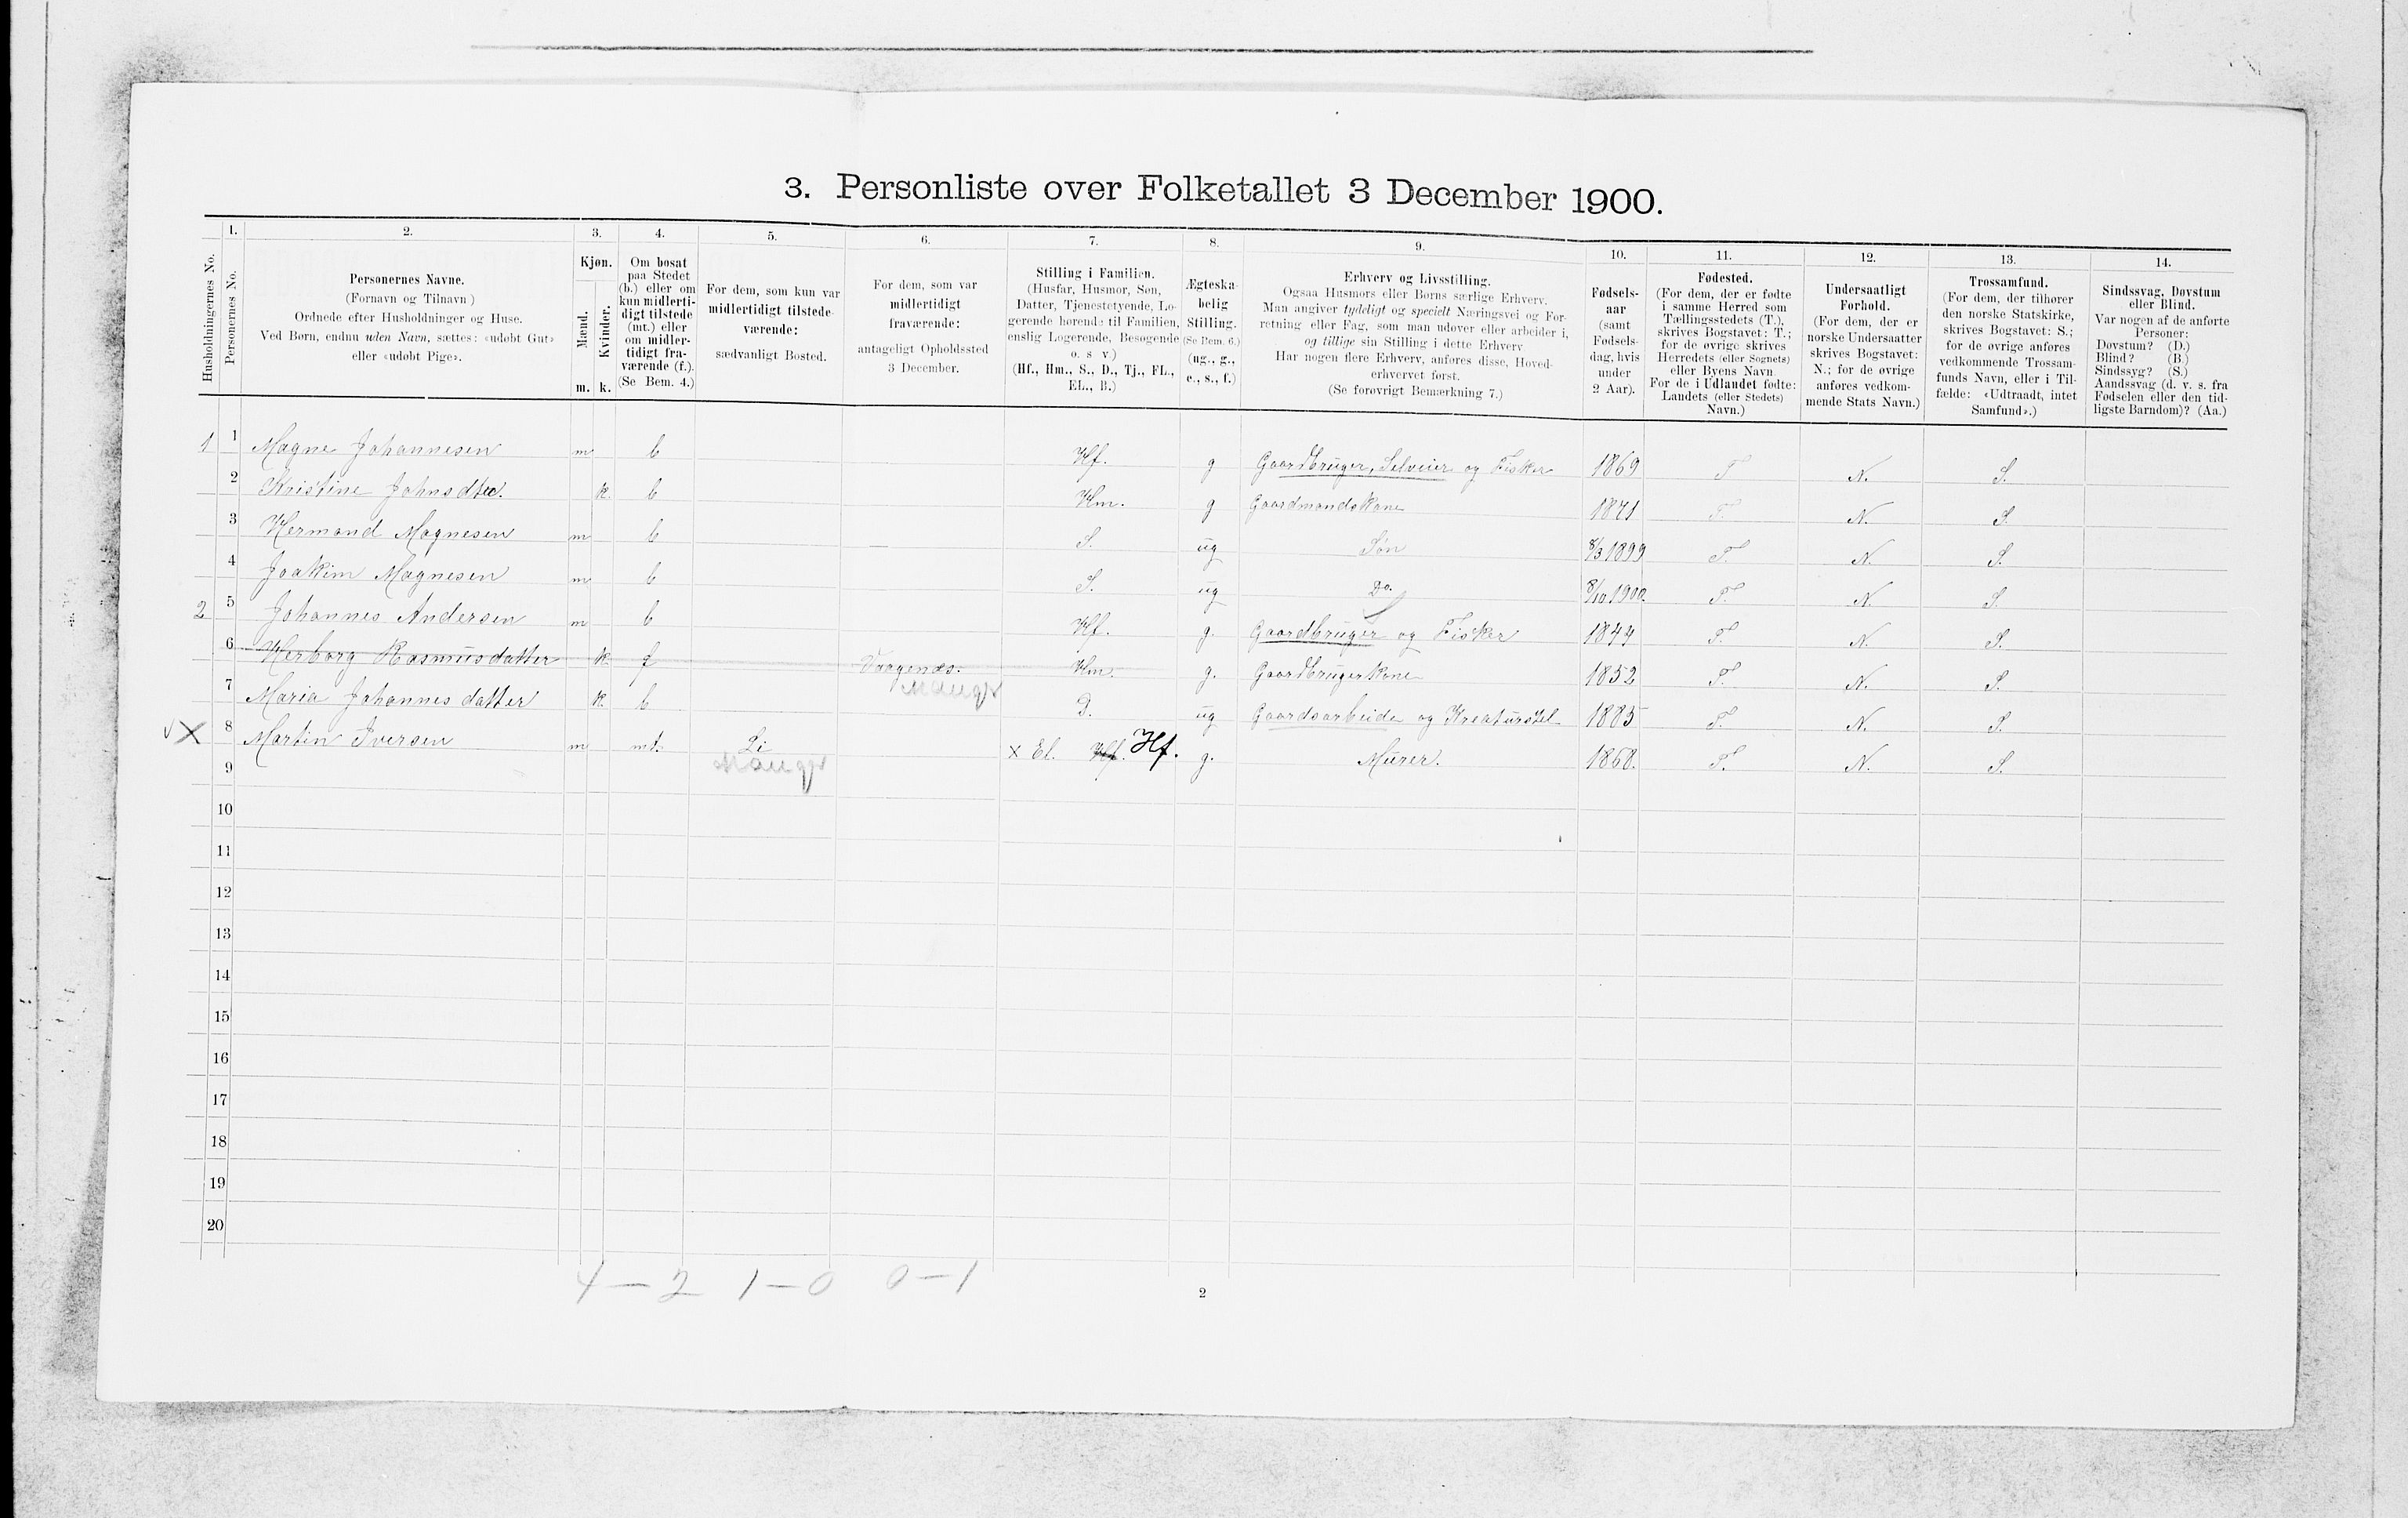 3. Personliste over Folketallet 3 December 1900.
Husholdningernes No.
1.
Personernes No.
2.
Personernes Navne.
(Fornavn og Tilnavn)
Ordnede efter Husholdninger og Huse.
Ved Børn, endnu uden Navn, sættes: «udøbt Gut»
eller «udøbt Pige».
3.
Kjøn.
Mænd.
Kvinder.
m. k.
4.
Om bosat
paa Stedet
(b.) eller om
kun midlerti-
digt tilstede
(mt.) eller
om midler-
tidigt fra-
værende (f.).
(Se Bem. 4.)
5.
For dem, som kun var
midlertidigt tilstede-
værende:
sædvanligt Bosted.
6.
For dem, som var
midlertidigt
fraværende:
antageligt Opholdssted
3 December.
7.
Stilling i Familien.
(Husfar, Husmor, Søn,
Datter, Tjenestetyende, Lo-
gerende hørende til Familien,
enslig Logerende, Besøgende
o. s v.)
(Hf., Hm., S., D., Tj., FL.,
EL., B.)
8.
Ægteska-
belig
Stilling.
(Se Bem. 6.)
(ug., g.,
e., s., f.)
9.
Erhverv og Livsstilling.
Ogsaa Husmors eller Børns særlige Erhverv.
Man angiver tydeligt og specielt Næringsvei og For-
retning eller Fag, som man udøver eller arbeider i,
og tillige sin Stilling i dette Erhverv
Har nogen flere Erhverv, anføres disse, Hoved-
erhvervet først.
(Se forøvrigt Bemærkning 7.)
10.
Fødsels-
aar
(samt
Fødsels-
dag, hvis
under
2 Aar).
11.
Fødested.
(For dem, der er fødte
i samme Herred som
Tællingsstedets (T.),
skrives Bogstavet: T.;
for de øvrige skrives
Herredets (eller Sognets)
eller Byens Navn
For de i Udlandet fødte:
Landets (eller Stedets)
Navn.)
12.
Undersaatligt
Forhold.
(For dem, der er
norske Undersaatter
skrives Bogstavet:
N.; for de øvrige
anføres vedkom-
mende Stats Navn.)
13.
Trossamfund.
(For dem, der tilhører
den norske Statskirke,
skrives Bogstavet: S.;
for de øvrige anføres
vedkommende Trossam-
funds Navn, eller i Til-
fælde: «Udtraadt, intet
Samfund».)
14.
Sindssvag, Døvstum
eller Blind.
Var nogen af de anførte
Personer:
Døvstum? (D.)
Blind? (B.)
Sindssyg? (S.)
Aandssvag (d. v. s. fra
Fødselen eller den tid-
ligste Barndom)? (Aa.)
1 1 Magne Johannesen m b Hf. g Gaardbruger, Selveier og Fisker 1869 T N. S.
2 Kristine Johnsdtr. k. b Hm. g Gaardmandskone 1871 T N. S.
3 Hermand Magnesen m b S. ug Søn 8/3 1899 T. N. S.
4 Joakim Magnesen m b S. ug Do. 8/10 1900. T. N. S.
2 5 Johannes Andersen m b Hf. g. Gaardbruger og Fisker 1844 T. N. S.
6 Herborg Rasmusdatter k. f Vaagenæs. Hm. g. Gaardbrugerkone 1852 T. N. S.
Manger
7 Maria Johannesdatter k. b D. ug Gaardsarbeide og Kreaturstel 1885 T. N. S.
X 8 Martin Iversen m mt. Li x El. Hf. Hf. g. Murer. 1868. T. N. S.
Manger
9
10
11
12
13
14
15
16
17
18
19
20
4 — 2 1 — 0 0 — 1
2